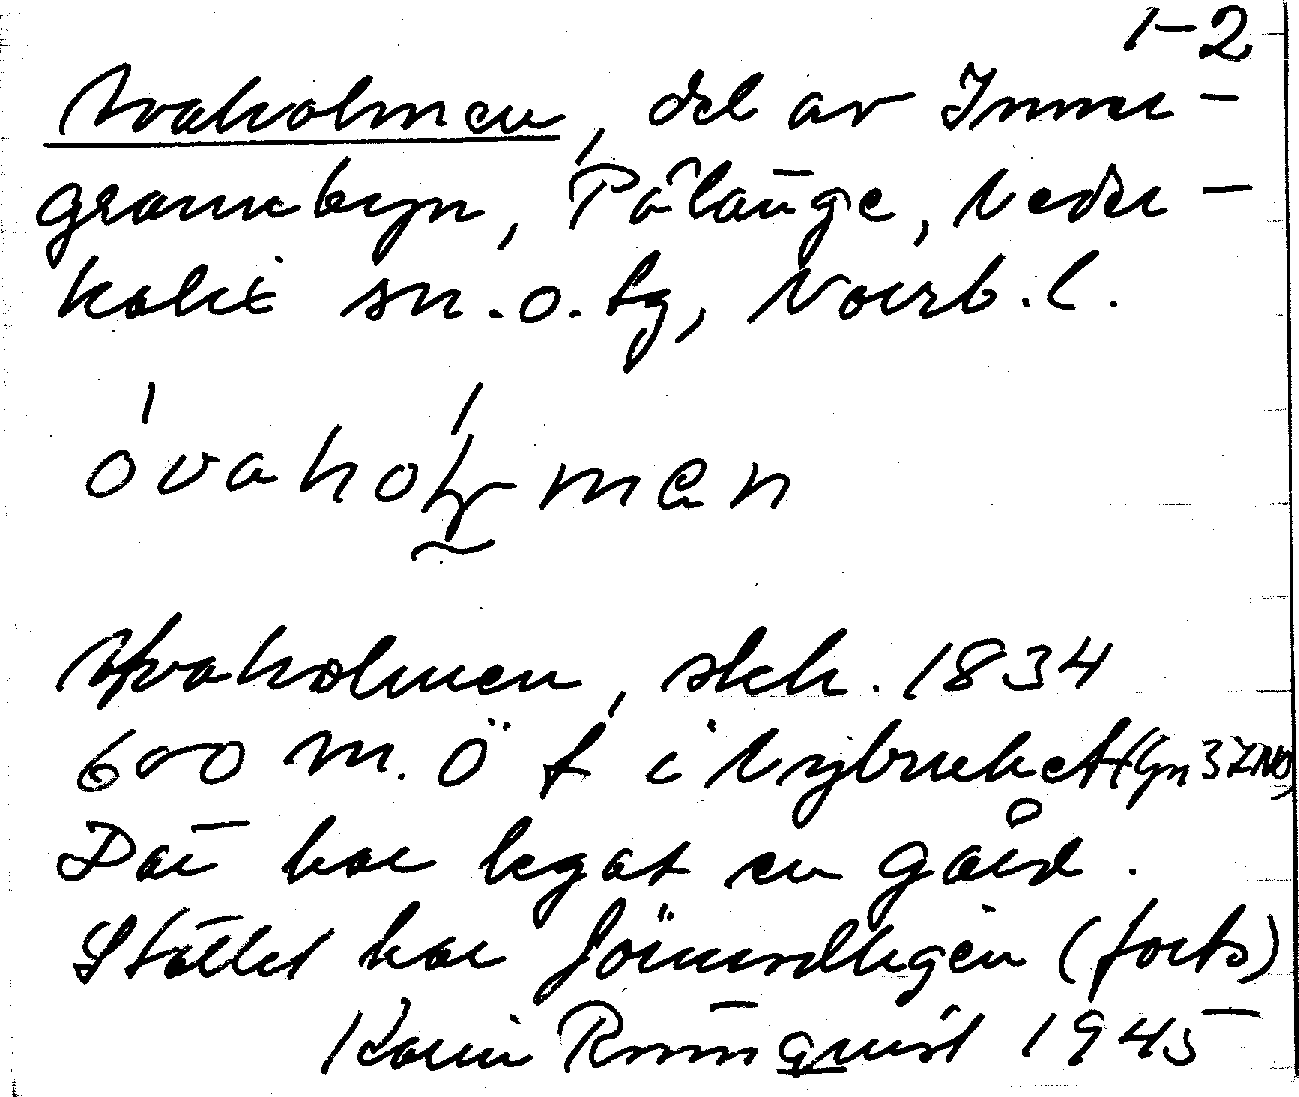 1-2
Ivaholmen, del av Inner-
grannbyn, Pålänge, Neder-
kalix sn. o. tg, Norrb. l.
óvahoḷmen
Yvaholmen, stck. 1834
600 m. ö f i Nybruket (Gn 37NO)
Där har legat en gård.
Stället har förmodligen (forts)
Karin Rönnquist 1945